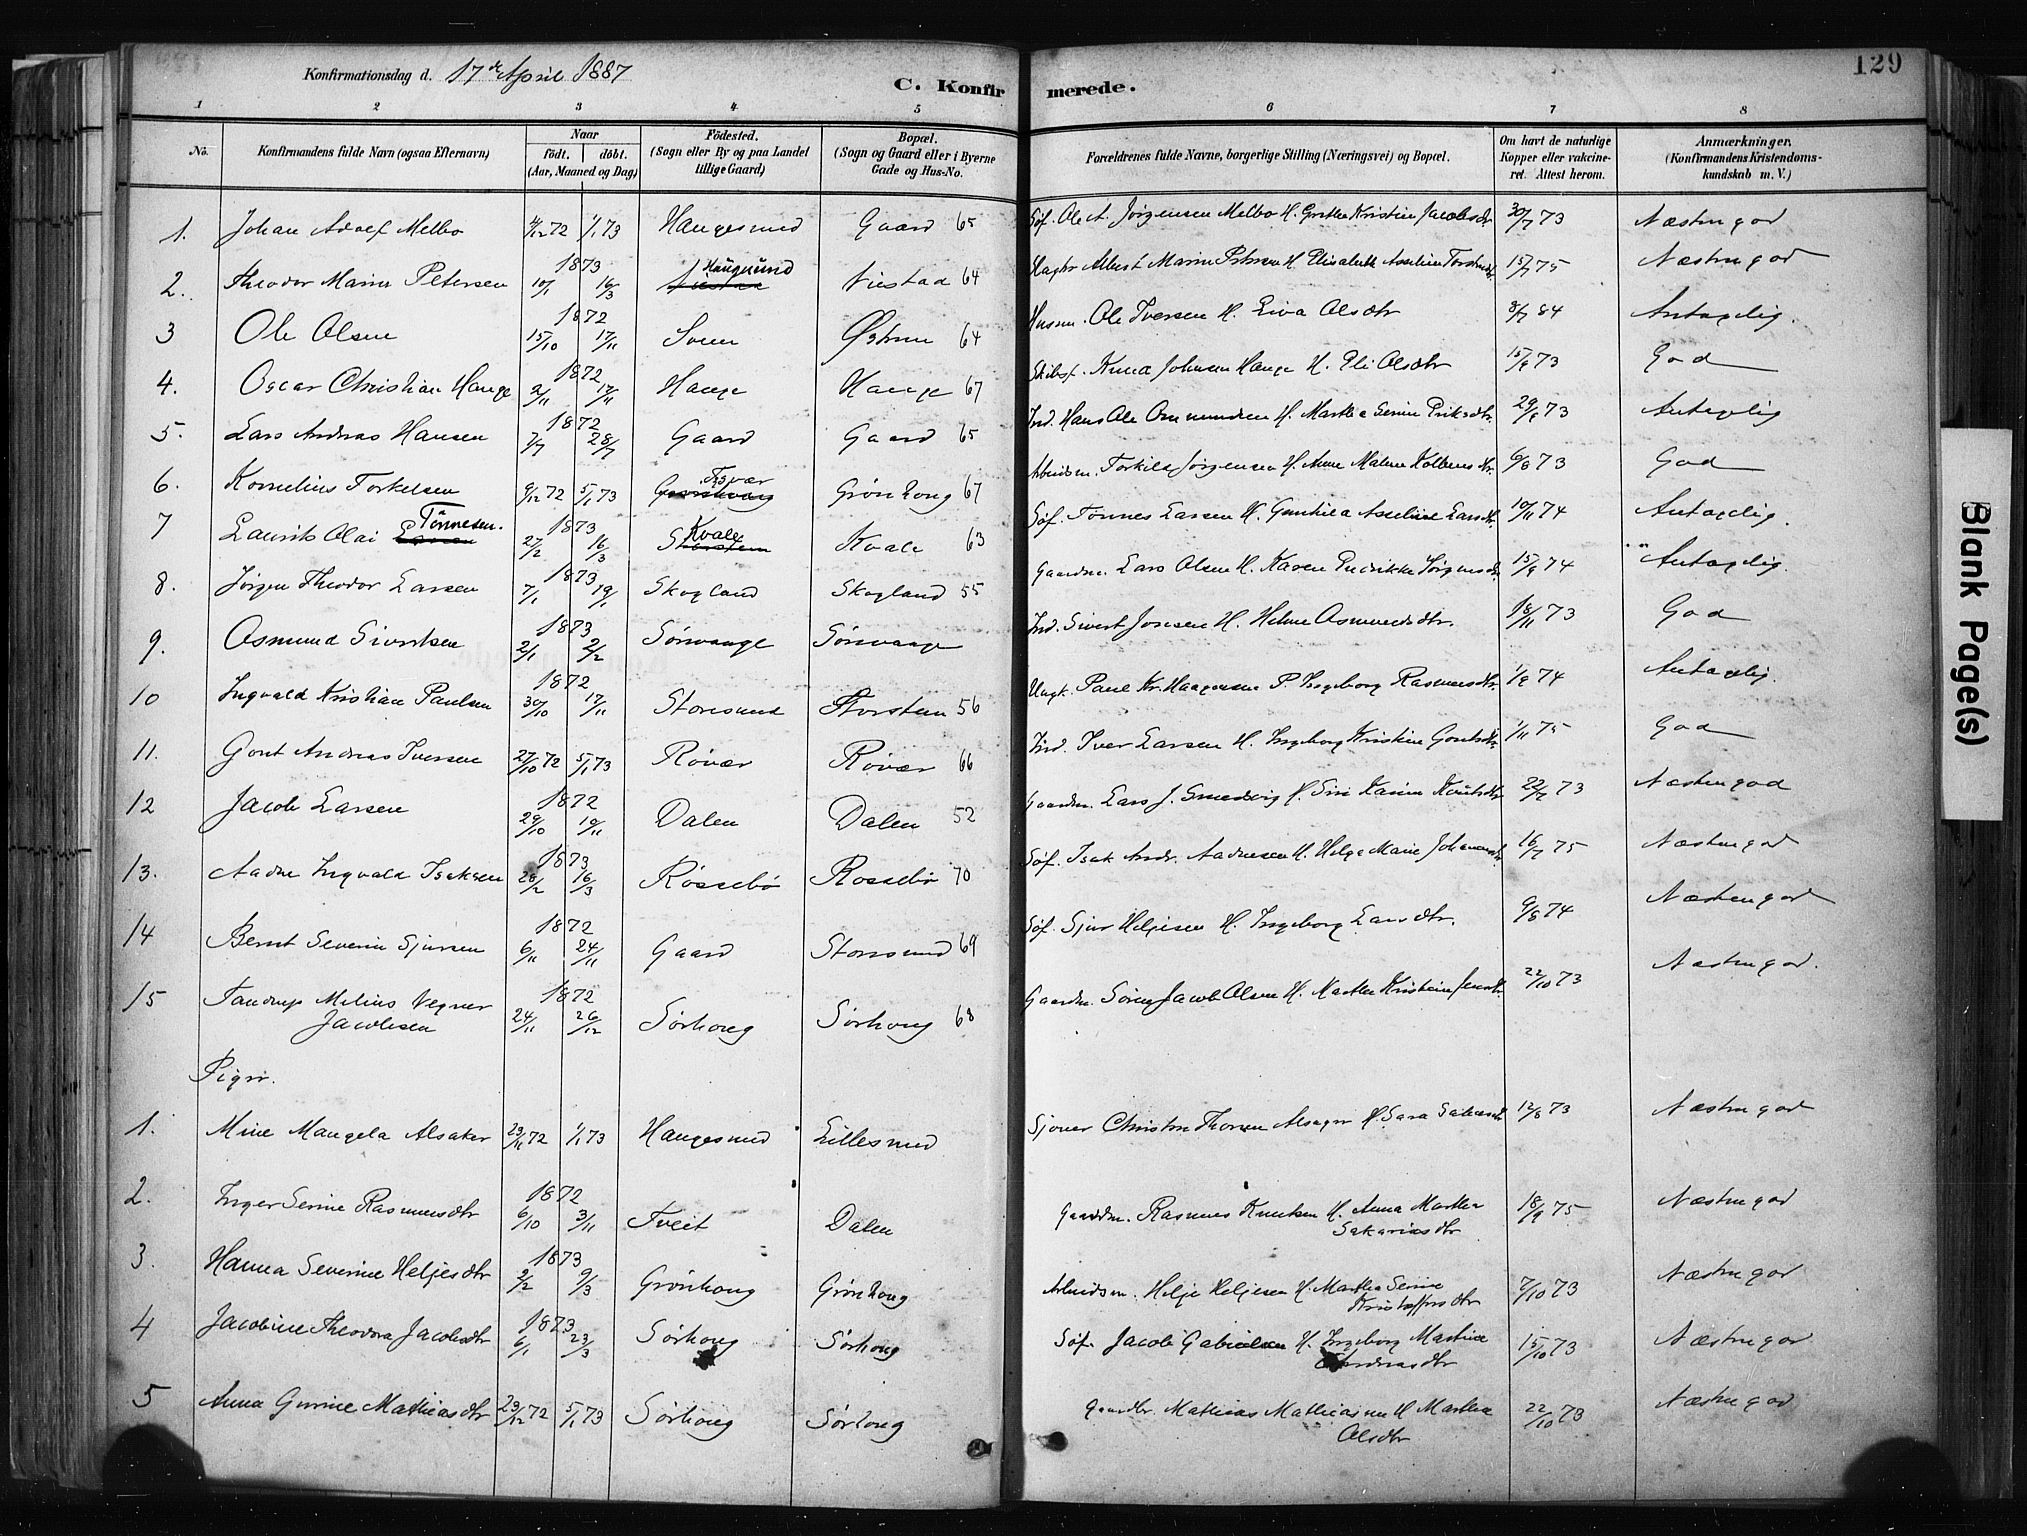 Konfirmationsdag d. 17de April 1887
C. Konfirmerede.
129
1 2 3 4 5 6 7 8
No. Konfirmandens fulde Navn (ogsaa Efternavn) Naar födt. döbt. (Aar, Maaned og Dag) Födested. (Sogn eller By og paa Landet tillige Gaard) Bopæl. (Sogn og Gaard eller i Byerne Gade og Hus-No. Forældrenes fulde Navne, borgerlige Stilling (Næringsvei) og Bopæl. Om havt de naturlige Kopper eller vakcineret. Attest herom. Anmærkninger. (Konfirmandens Kristendomskundskab m. V.)
1. Johan Adolf Melbo 4/12 72 1/1 73 Haugesund Gaard 65 Söf. Ole A. Jörgensen Melbo H. Grethe Kristine Jacobsdtr 30/7 73 Næstengod
2. Theodor Marius Petersen 1873 10/1 16/3 Haugesund Viestad 64 Albert Marin Petersen H. Elisabeth Asseline 15/7 75 Næstengod
3 Ole Olsen 1872 15/10 17/11 Östrem 64 Husm. Ole Iversen H. Eiva Olsdtr 8/7 84 Antagelig.
4. Oscar Christian Hauge 1872 2/11 17/11 Hauge Hauge 67 Skibsf. Knud Johnsen Hauge H. Eli Olsdtr 15/9 73 God
5. Lars Andreas Hansen 1872 7/7 28/7 Gaard Gaard 65 Ind. Hans Ole Ommundsen H. Marthe Serine Eriksdtr. 29/8 73 Antagelig
6. Kornelius Torkelsen 9/12 72 5/1 73 Grönhoug 67 Arbeidsm. Torkild Jörgensen H. Anne Malene 6/8 73 God
7 Laurits Olai Tönnesen. 1873 27/2 16/3 Kvale Kvale 63 Söf. Tönnes Larsen H. Gunhild Asseline Larsdtr. 10/11 74 Antagelig.
8. Jörgen Theodor Larsen 1873 7/1 19/1 Skogland Skogland 55 Gaardm. Lars Olsen H. Karen Fredrikke Jörgensdtr 15/9 74 Antagelig.
9. Osmund Sivertsen 1873 2/1 2/2 Sörvaage Sörvaage Ind. Sivert Jonsen H. Helene Osmundsdtr. 18/11 73 God
10 Ingvald Kristian Paulsen 1872 30/10 17/11 Storesund Storsten 56 Ungk. Paul Kr. Haagensen P. Ingeborg Rasmusdtr. 1/9 74 Antagelig.
11. Gont Andreas Iversen 27/10 72 5/1 73 Rövær Rövær 66 Ind. Iver Larsen H. Ingeborg Kristine Gontsdtr 1/11 75 God
12 Jacob Larsen 1872 29/10 10/11 Dalen Dalen 52 Gaardm. Lars J. Smedsvig H. Siri Karine Knutsdtr 22/7 73 Næstengod
13. Aadne Ingvald Isaksen 1873 28/2 16/3 Rössebö Rossebö 70 Söf. Isak Andr. Aadnesen H. Helga Marie 16/7 75 Næstengod
14 Bernt Severin Sjursen 1872 6/11 24/11 Gaard Storesund 69 Söf. Sjur Heljesen H. Ingeborg Larsdtr. 9/8 74 Næstengod
15 Tandrup Melius Vegner Jacobsen 1872 24/11 26/12 Sörhoug Sörhoug 68 Gaardm. Sören Jacob Olsen H. Marthe Kristine 22/10 73 Næstengod.
Piger.
1. Mine Mangela Alsaker 23/11 72 1/1 73 Haugesund Lillesund Christen Thorsen H. Sara 12/8 73 Næstengod
2. Inger Serine Rasmusdtr 1872 6/10 3/11 Tveit Dalen Gaardm. Rasmus Knutsen H. Anna Marthe Sakariasdtr 18/9 75 Næstengod
3. Hanna Severine Heljesdtr 1873 2/2 9/3 Grönhoug Grönhoug Arbeidsm. Helje Heljesen H. Marthe Serine Kristoffersdtr 7/10 73 Næstengod
4 Jacobine Theodora Jacobsdtr 1873 6/1 23/3 Sörhoug Sörhoug Söf. Jacob Gabrielsen H. Ingeborg Martine Andreasdtr 15/10 73 Næstengod
5 Anna Gurine Mathiasdtr 23/12 72 5/1 73 Sörhoug Sörhoug Gaardbr. Mathias Mathiasen H Marthe Olsdtr 22/10 73 Næstengod
Blank Page(s)